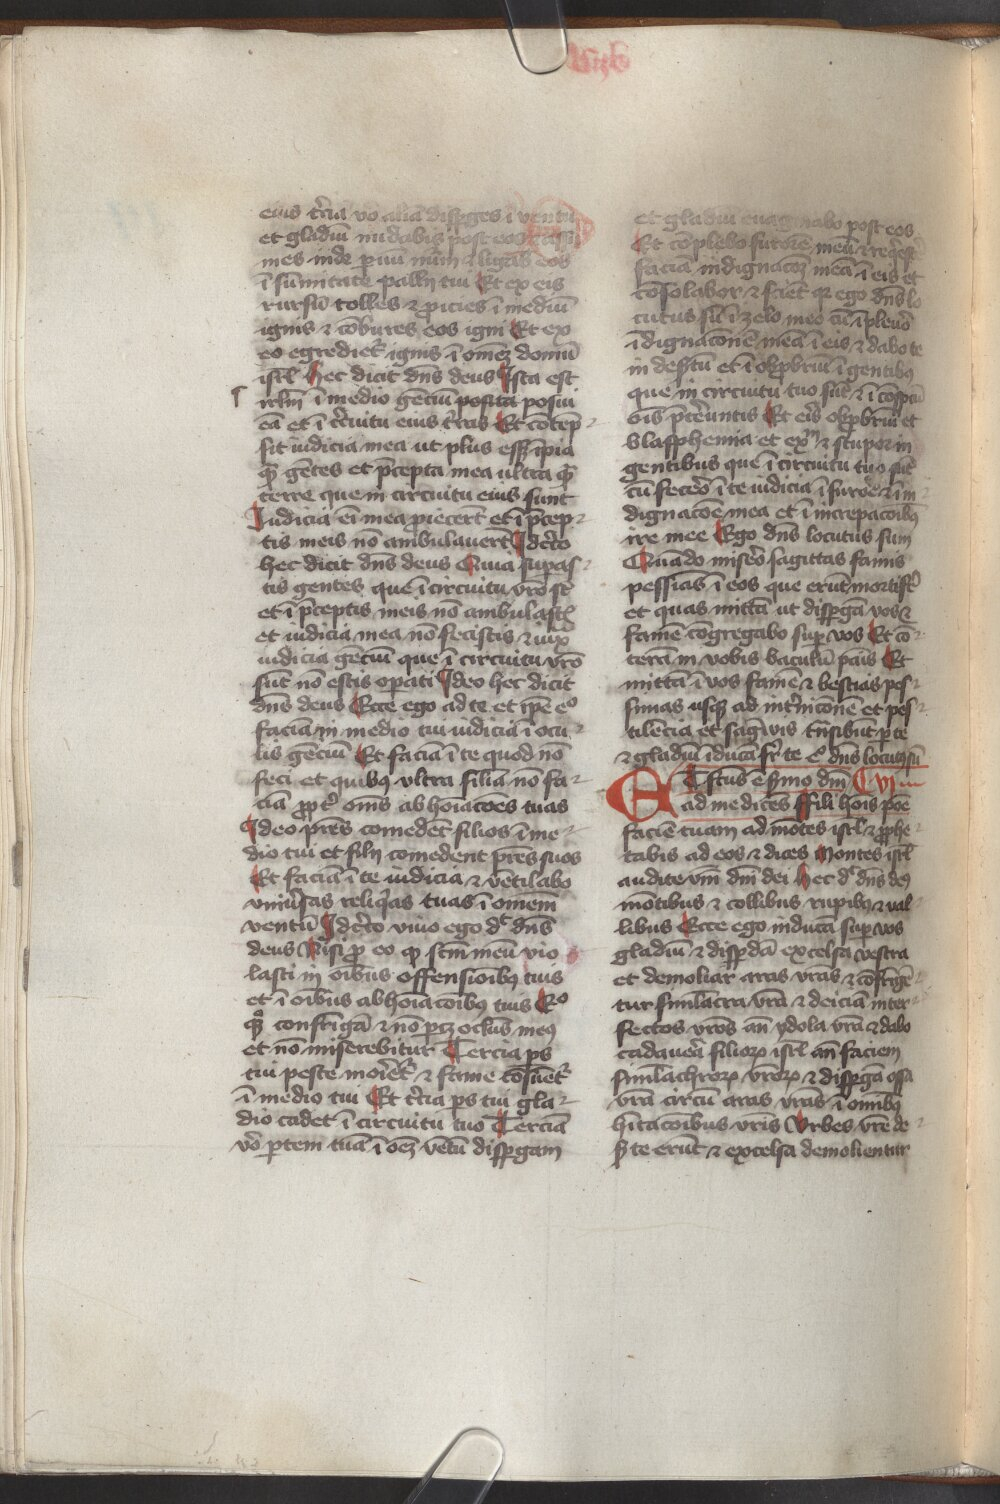 eius t'ciā vo aliā disp̄ges ī ventū
et gladiū nudabis post eos Et su
mes inde paruū num' ⁊ ligabis eos
ī sūmitate pallij tui Et ex eis
rursū tolles ⁊ proicies ī mediū
ignis ⁊ cōbures eos igni Et ex
eo egrediet' ignis ī omēz domū
isrl Hec dicit dn̄s deus Ista est
irlm̄ ī medio gētiū posita posui
eā et ī c'cuitu eius t'ras Et cōtēp
sit iudicia mea ut plus ess; īpia
q̄ gētes et p̄cepta mea ultra q̄
terre que in circuitu eius sunt
Iudicia eī mea proiecer̄t et ī p̄cep
tis meis nō ambulauer̄t Idcirco
hec dicit dn̄s deus Quia supas
tis gentes que ī circuitu vr̄o st̄
et ī p̄ceptis meis nō ambulast'
et iudicia mea nō fecistis ⁊ iux
iudicia gētiū que ī circuitu vr̄o
sūt nō estis opati Ideo hec dicit
dn̄s deus Ecce ego ad te et ip̄e eº
faciā in medio tui iudicia ī ocu
lis gētiū Et faciā ī te quod nō
feci et quibꝰ ultra siliā nō fa
ciā propt' om̄s abhoīacōes tuas
Ideo pr̄es comedēt filios ī me
dio tui et filij comedent pr̄es suos
Et faciā ī te iudicia ⁊ vētilabo
vniūsas reliq̄as tuas ī omēm
ventū Idcirco viuo ego d't dn̄s
deus Nisi pro eo q scm̄ meū vio
lasti in oībus offensioībꝰ tuis
et ī oībus abhoīacoībꝰ tuis Eº
q̄ꝫ confrīgā ⁊ nō pcz oclūs meꝰ
et nō miserebitur Tercia ps
tui peste moriet' ⁊ fame cōsūet'
ī medio tui Et t'cia ps tui gla
dio cadet ī circuitu tuo Terciā
v̄o ptem tuā ī oēz vētū disp̄gam
et gladiū euaginabo post eos
Et cōplebo furorē meū ⁊ req̄esc'
faciā indignacōꝫ meā ī eis et
cōsolabor ⁊ sciēt q ego dn̄s lo
cutus sū ī zelo meo cū īpleuō
īdignacōnē meā ī eis ⁊ dabo te
in desertū et ī obprobriū ī gentibꝰ
que in circuitu tuo sūt ⁊ ī cōspcū
oīs p̄tereuntis Et eris obprobriū et
blasphemia et exm ⁊ stupor in
gentibus que ī circuitu tuo sūt
cū fecerō ī te iudicia ī furore ⁊ ī in
dignacōe mea et ī increpacoībꝰ
ire mee Ego dn̄s locutus sum
Quādo miserō sagittas famis
pessias ī eos que erūt mortifē
et quas mittā ut disp̄gā vos ⁊
famē cōgregabo sup vos Et cō
terā in vobis baculū pāis Et
mittā ī vos famē ⁊ bestias pes
simas usqꝫ ad int'nicōnē et pes
tilēcia et sāguis trāsibūt p te
⁊ gladiū īducā sr̄ te Eº dn̄s locutꝰ sū
ET f̄ctus ē s'mo dn̄i C VI
ad me dicēs Fili hoīs pōe
faciē tuam ad mōtes isrl ⁊ prophe
tabis ad eos ⁊ dices Montes isrl
audite v'm dn̄i dei Hec d't dn̄s deꝰ
mōtibus ⁊ collibus rupibꝰ ⁊ val
libus Ecce ego inducā sup vos
gladiū ⁊ disp̄dā excelsa vestra
et demoliar aras vr̄as ⁊ cōfrīgē
tur simlacra vr̄a ⁊ deiciā inter
fectos vr̄os an̄ ydola vr̄a ⁊ dabo
cadauera filioꝝ isrl an̄ faciem
simlachroꝝ vr̄oꝝ ⁊ disp̄gā ossa
vr̄a circū aras vr̄as ī om̄ibꝰ
hītacōibus vr̄is Vrbes vr̄e de
s'te erūt ⁊ excelsa demolientur